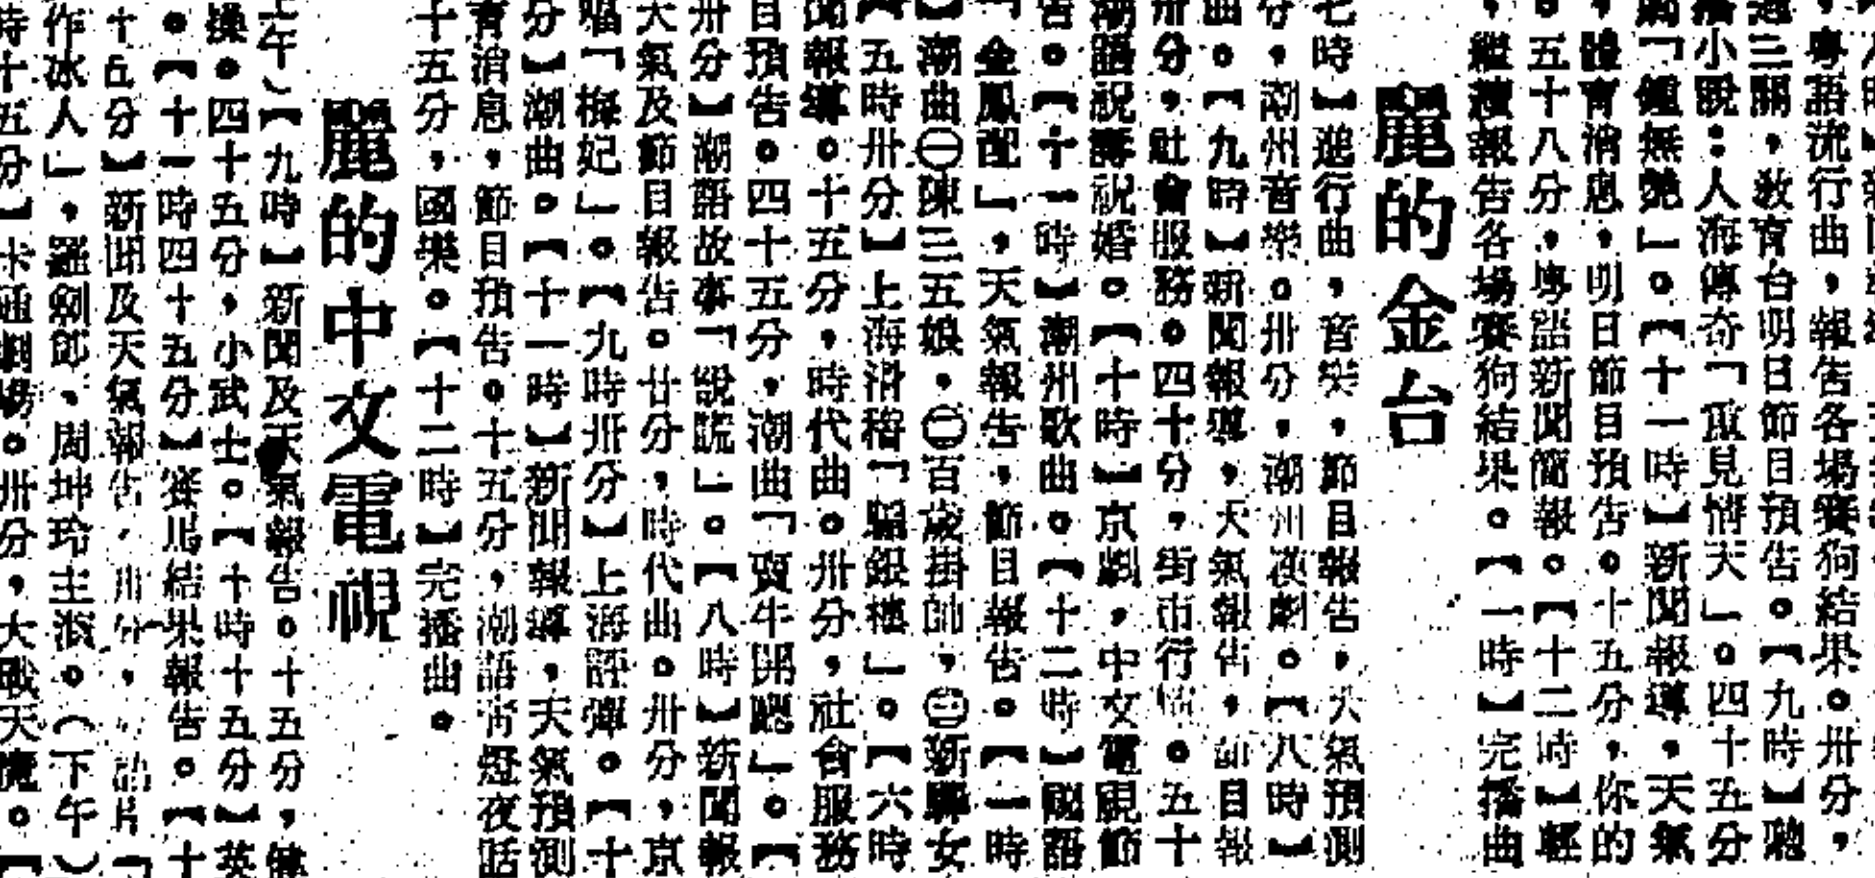 ，粵語流行曲，報告各場賽狗結果。卅分，
過三關，教育台明日節目預告。【九時】聽
播小說：人海傳奇「重見情天」。四十五分
劇「鍾無艷」。【十一時】新聞報導，天氣
，體育消息，明日節目預告。十五分，你的
。五十八分，粵語新聞簡報。【十二時】輕
，繼續報告各場賽狗結果。【一時】完播曲
麗的金台
七時】進行曲，音樂，節目報告，天氣預測
，潮州音樂。卅分，潮州漢劇。【八時】
曲。【九時】新聞報導，天氣報告，節目報
卅分，社會服務。四十分，街市行情。五十
潮語說壽祝婚。【十時】京劇，中文電視節
告。【十一時】潮州歌曲。【十二時】國語
「金鳳配」，天氣報告，節目報告。【一時
】潮曲㊀陳三五娘，㊁百歲掛帥，㊂新聯女
【五時卅分】上海滑稽「騙銀樓」。【六時
聞報導。十五分，時代曲。卅分，社會服務
目預告。四十五分，潮曲「賣牛開廳」。【
卅分】潮語故事「說謊」。【八時】新聞報
天氣及節目報告。廿分，時代曲。卅分，京
唱「梅妃」。【九時卅分】上海評彈。【十
分】潮曲。【十一時】新聞報導，天氣預測
育消息，節目預告。十五分，潮語宵燈夜話
十五分，國樂。【十二時】完播曲。
麗的中文電視
上午）【九時】新聞及天氣報告。十五分，健
操。四十五分，小武士。【十時十五分】英
。【十一時四十五分】賽馬結果報告。【十
十五分】新聞及天氣報告，卅分，語片「
作冰人」，羅劍郎、周坤玲主演。（下午）
時十五分】卡通劇場。卅分，大戰天魔。【